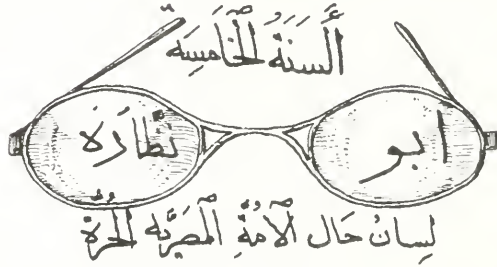 أَلسَنَةُ الْخَامِسَة
ابو نَظَّارَة
لِسَانُ حَال الْأُمَّةِ الْمَصْرِيَّه الْحُرَّة